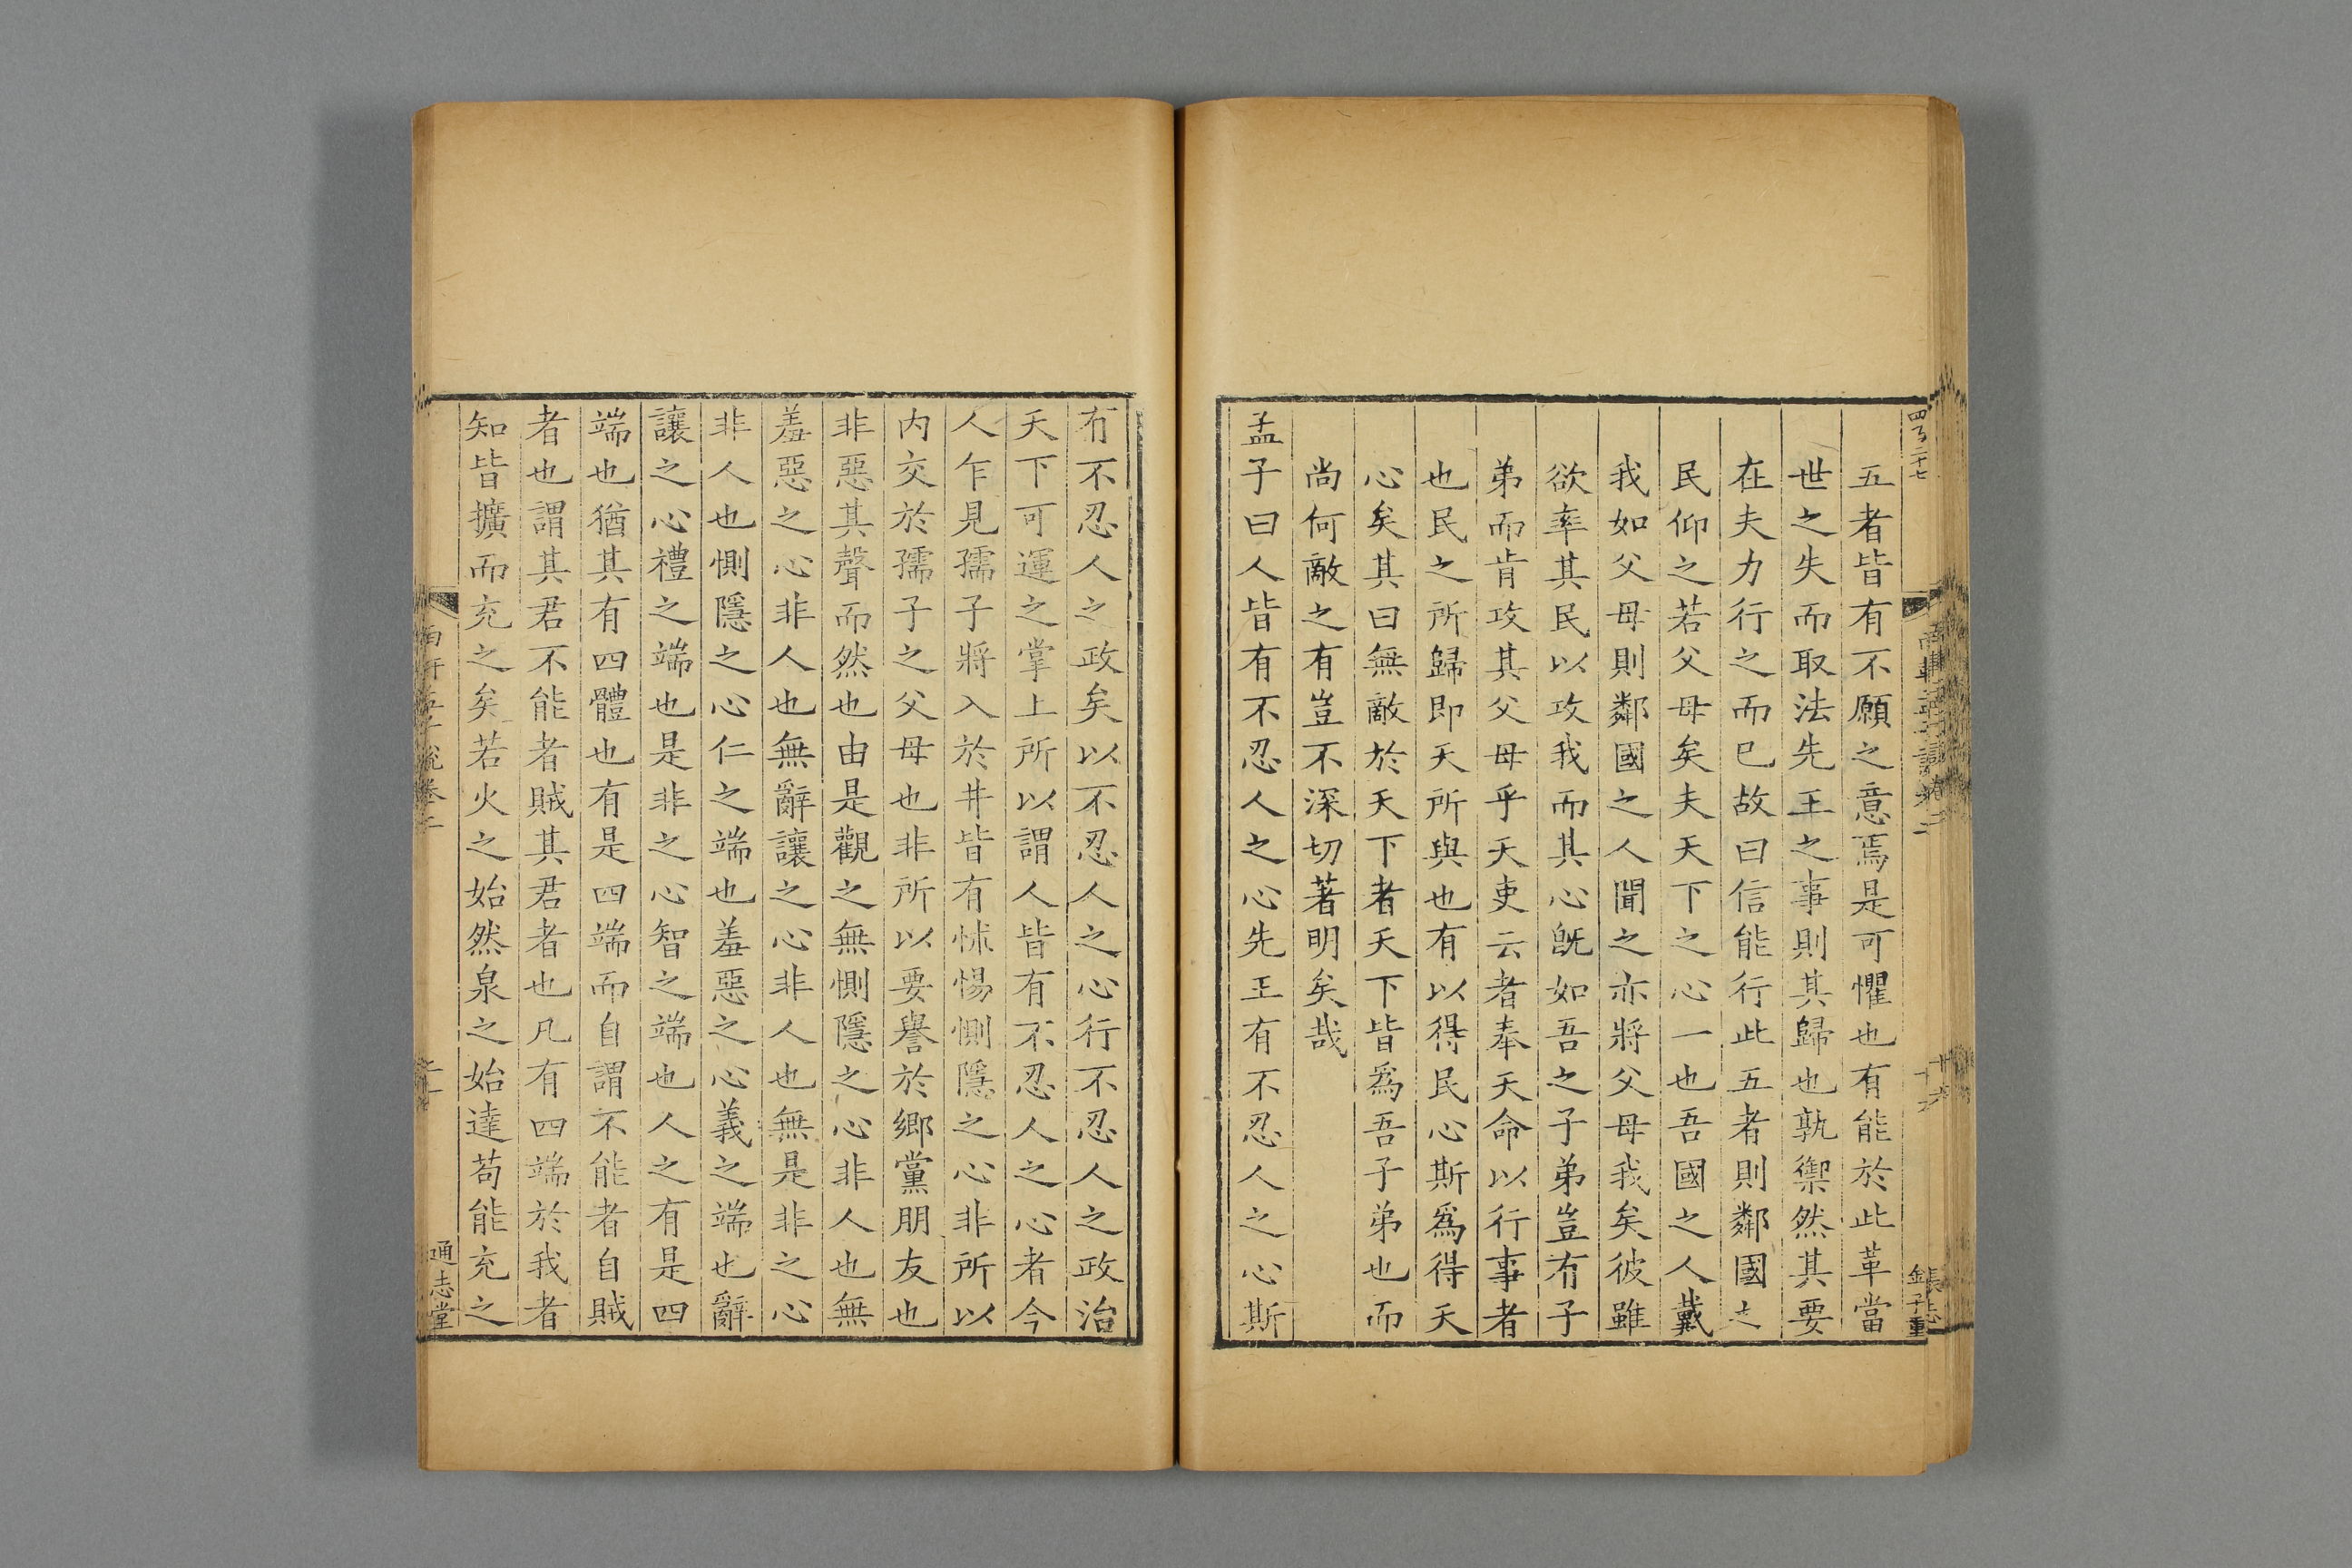 五者皆有不願之意焉是可懼也有能於此革當
世之失而取法先王之事則其歸也孰禦然其要
在夫力行之而已故曰信能行此五者則鄰國之
民仰之若父母矣夫天下之心一也吾國之人戴
我如父母則鄰國之人聞之亦將父母我矣彼雖
欲率其民以攻我而其心旣如吾之子弟豈有子
弟而肯攻其父母乎天吏云者奉天命以行事者
也民之所歸即天所與也有以得民心斯爲得天
心矣其曰無敵於天下者天下皆爲吾子弟也而
尚何敵之有豈不深切著明矣哉
孟子曰人皆有不忍人之心先王有不忍人之心斯
有不忍人之政矣以不忍人之心行不忍人之政治
天下可運之掌上所以謂人皆有不忍人之心者今
人乍見孺子將入於井皆有怵惕惻隱之心非所以
内交於孺子之父母也非所以要譽於鄉黨朋友也
非惡其聲而然也由是觀之無惻隱之心非人也無
羞惡之心非人也無辭讓之心非人也無是非之心
非人也惻隱之心仁之端也羞惡之心義之端也辭
讓之心禮之端也是非之心智之端也人之有是四
端也猶其有四體也有是四端而自謂不能者自賊
者也謂其君不能者賊其君者也凡有四端於我者
知皆擴而充之矣若火之始然泉之始達苟能充之
通志堂